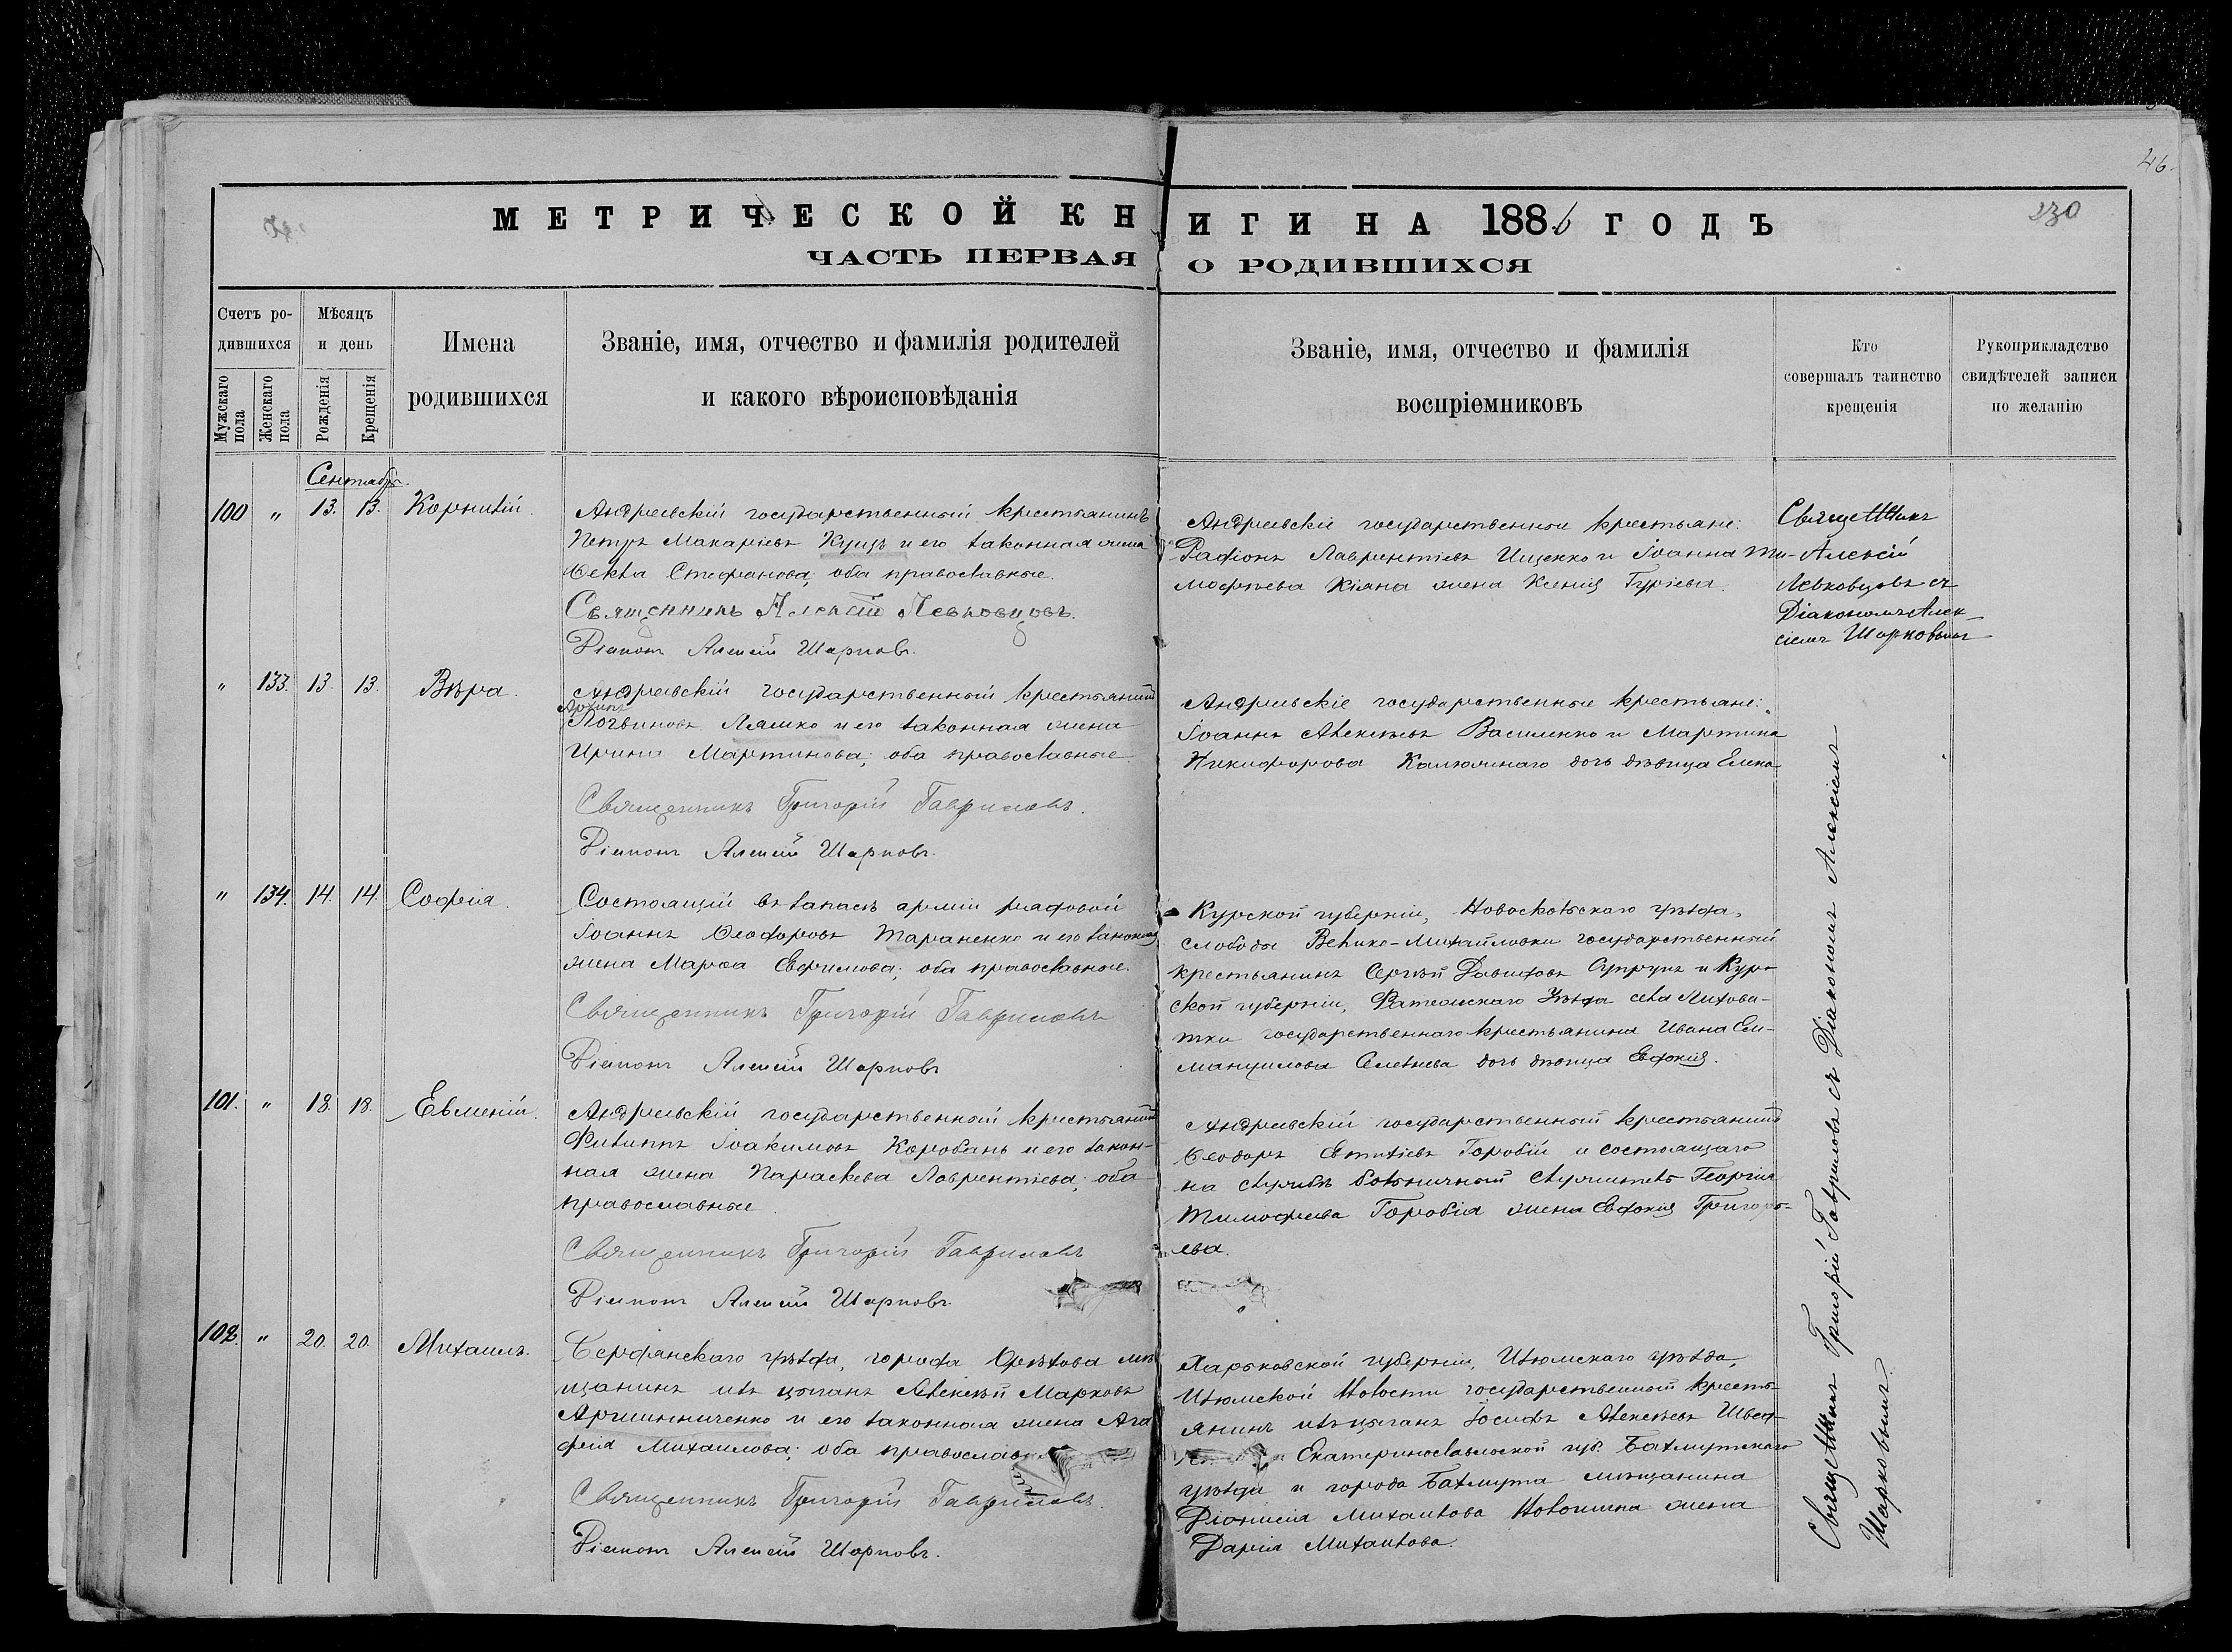 46.
МЕТРИЧЕСКОЙ КНИГИ НА 1886 ГОДЪ
230
ЧАСТЬ ПЕРВАЯ О РОДИВШИХСЯ
Счетъ ро-
дившихся
Мужскаго пола
Женскаго пола
Мѣсяцъ
и день
Рожденія
Крещенія
Имена
родившихся
Званіе, имя, отчество и фамилія родителей
и какого вѣроисповѣданія
Званіе, имя, отчество и фамилія
воспріемниковъ
Кто
совершалъ таинство
крещенія
Рукоприкладство
свидѣтелей записи
по желанію
Сентябрь
100 " 13. 13. Корнилій.
Андреевскій государственный крестьянинъ
Петръ Макаріевъ Куцъ и его законная жена
Ѳекла Стефанова; оба православные.
Священникъ Алексій Левковцовъ.
Діаконъ Алексій Шарковъ.
Андреевскіе государственные крестьяне:
Радіонъ Лаврентіевъ Ищенко и Іоанна Ти-
мофѣева Кіяна жена Ксенія Гуріева.
Священникъ
Алексій
Левковцовъ съ
Діакономъ Алек-
сіемъ Шарковымъ
" 133. 13. 13. Вѣра.
Андреевскій государственный крестьянинъ
Архипъ
Логвиновъ Ляшко и его законная жена
Ирина Мартинова; оба православные.
Священникъ Григорій Гавриловъ.
Діаконъ Алексій Шарковъ.
Андреевскіе государственные крестьяне:
Іоаннъ Алексѣевъ Василенко и Мартина
Никифорова Калюжнаго дочь дѣвица Елена
" 134. 14. 14. Софія.
Состоящій въ запасѣ арміи рядовой
Іоаннъ Ѳеодоровъ Тараненко и его законная
жена Марѳа Ефимова; оба православные.
Священникъ Григорій Гавриловъ
Діаконъ Алексій Шарковъ
Курской губерніи, Новооскольскаго уѣзда,
слободы Велико-Михайловки государственный
крестьянинъ Сергѣй Давидовъ Супрунъ и Кур-
ской губерніи, Фатежскаго Уѣзда села
государственнаго крестьянина Ивана Ем-
мануилова дочь дѣвица Евдокія.
101. " 18. 18. Евменій.
Андреевскій государственный крестьянинъ
Филиппъ Іоакимовъ Коробань и его закон-
ная жена Параскева Лаврентіева; оба
православные.
Священникъ Григорій Гавриловъ
Діаконъ Алексій Шарковъ.
Андреевскій государственный крестьянинъ
Ѳеодоръ Горобій и состоящаго
на службѣ больничный служитель Георгія
Тимофѣева Горобія жена Евдокія Григорь-
ева.
102. " 20. 20. Михаилъ.
Бердянскаго уѣзда, города Орѣхова мѣ-
щанинъ изъ цыганъ Алексѣй Марковъ
Аршинниченко и его законная жена Ага-
фія Михаилова; оба православ
Священникъ Григорій Гавриловъ.
Діаконъ Алексій Шарковъ.
Харьковской губерніи, Изюмскаго уѣзда,
Изюмской волости государственный кресть-
янинъ изъ цыганъ Іосифъ Алексѣевъ
Екатеринославльской губ. Бахмутскаго
уѣзда и города Бахмута мѣщанина
Діонисія Михаилова жена
Дарія Михаилова.
Священникъ Григорій Гавриловъ съ Діакономъ Алексіемъ
Шарковымъ.